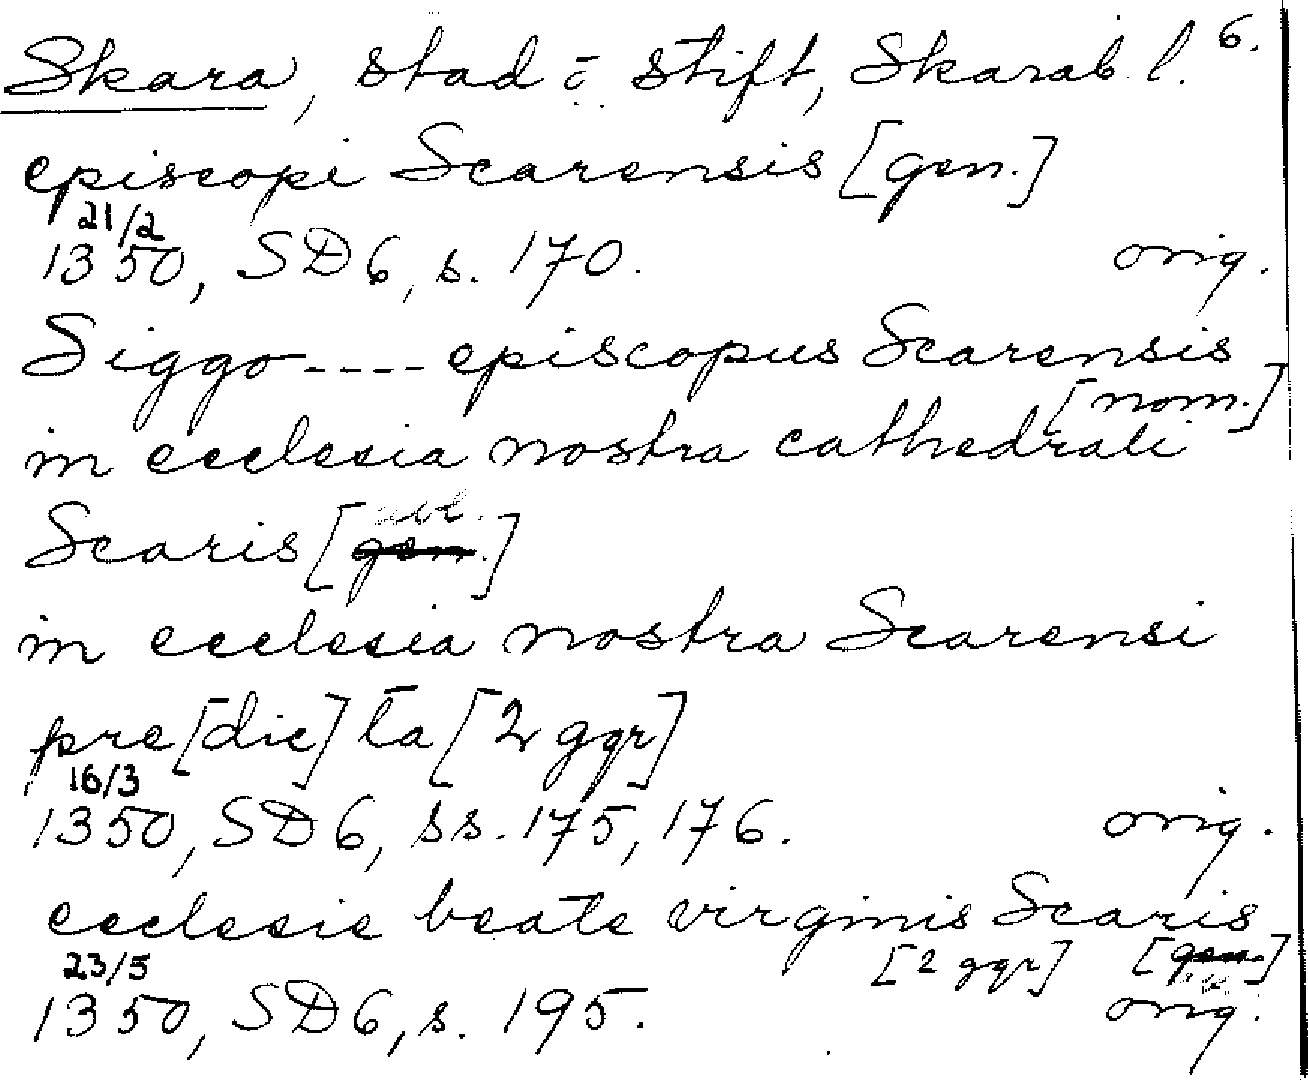 Skara, stad o. stift, Skarab. l. 6.
episcopi Scarensis [gen.]
21/2
1350, SD 6, s. 170. orig.
Siggo ---- episcopus Scarensis
[nom.]
in ecclesia nostra cathedrali
abl.
Scaris [gen.]
in ecclesia nostra Scarensi
pre[dic]ta [2 ggr]
16/3
1350, SD 6, ss. 175, 176. orig.
ecclesie beate virginis Scaris
[2 ggr] [gen.]
23/5
1350, SD 6, s. 195. orig.